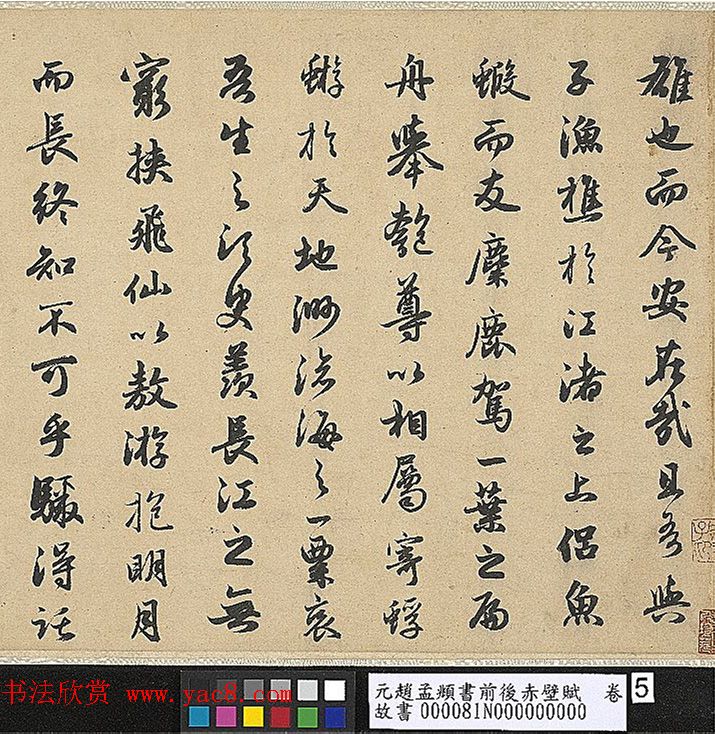 雄也而今安在哉且吾與
子漁樵於江渚之上侶魚
蝦而友麋鹿駕一葉之扁
舟舉匏尊以相屬寄蜉
蝣於天地渺滄海之一粟哀
吾生之須臾羨長江之無
窮挾飛仙以敖游抱明月
而長終知不可乎驟得託
书法欣赏 www.yac8.com
元趙孟頫書前後赤壁賦 卷 5
故書 000081N000000000